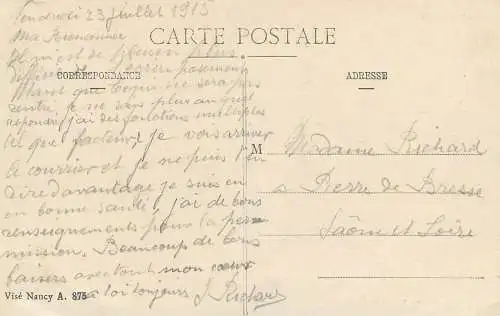 Vendredi 23 Juillet 1915
Ma
CARTE POSTALE
Il m'est de plus
CORRESPONDANCE
ADRESSE
Marot que ne sera pas
rentré, je ne sais plus au quel
répondre j'ai des fonctions multiples
tel que facteur, je vois arriver
le courrier et je ne puis t'en
dire davantage je suis en
en bonne santé, j'ai de bons
renseignements pour la perm
mission. Beaucoup de bons
baisers avec tout mon cœur
a toi toujours J Richard
M Madame Richard
a Pierre de Bresse
Saône et Loire
Visé Nancy A. 875